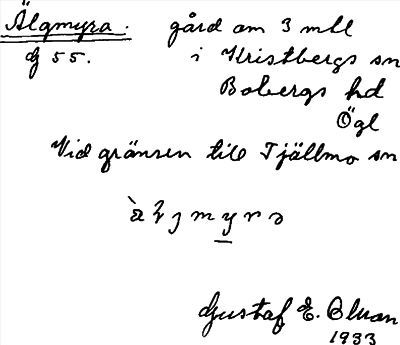 Älgmyra. gård om 3 mtl
dj 55. i Kristbergs sn
Bobergs hd
Ögl
Vid gränsen till Tjällmo sn
Gustaf E.
1933